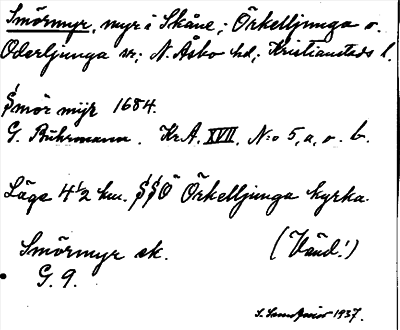 Smörmyr, myr i Skåne; Örkelljunga o.
Oderljunga sr; N. Åsbo hd; Kristianstads l.
Smör mijr 1684.
G. Buhrmann. Kr.A. XVII, N:o 5, a, o. b.
Läge 4 1/2 km. SSO Örkelljunga kyrka.
Smörmyr ek. (Vänd!)
G. 9.
1937.